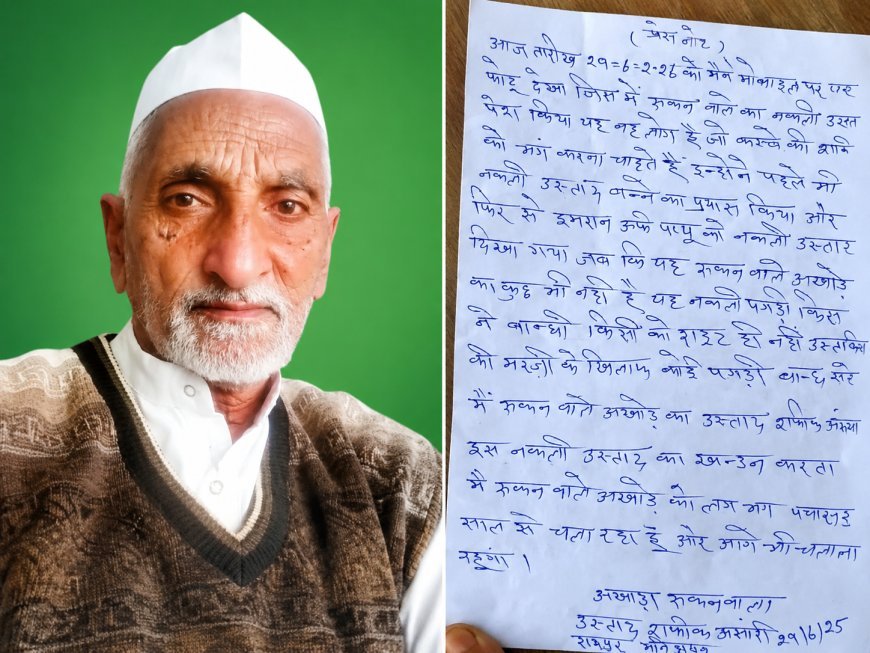 ( प्रेस नोट )
आज तारीख २९=६=2-2६ को मैने मोबाइल पर एक
फोटू देखा जिस में रुकन वाले का नकली उस्ताद
पेश किया यह वह लोग है जो कस्बे की शान्ति
को भंग करना चाहते हैं इन्होने पहले भी
नकली उस्ताद बन्ने का प्रयास किया और
फिर से इमरान उर्फ पापू को नकली उस्ताद
दिखा गया जब कि यह रुकन वाले अखाड़े
का कुछ भी नही है यह नकली पगड़ी किस
ने बान्धी किसी को राइट ही नहीं उस्ताद
की मरज़ी के खिलाफ कोई पगड़ी बान्ध सके
मैं रुकन वाले अखाड़े का उस्ताद
इस नकली उस्ताद का खन्डन करता
मै रुकन वाले अखाड़े को लग भग
साल से चला रहा हूँ और आगे भी चलाता
रहूंगा ।
अखाड़ा रुकनवाला
उस्ताद शफीक अंसारी २९/६/25
रायपुर